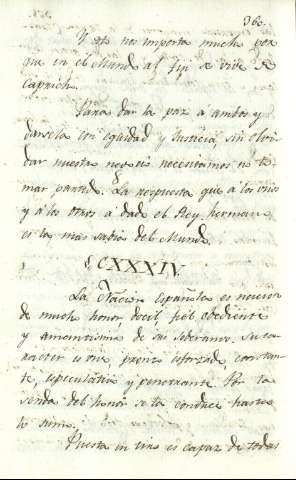 360.
Y esto nos importa mucho por
que en el Mundo al fin se vive de
Caprich.
Para dar la paz a ambos y
darsela con eguidad y Justicia sin olvi
dar nuestra necesitamos no to
mar partido. La respuesta que a los unos
y á los otros á dado el Rey hermano
es la mas sabia del Mundo.
§ CXXXIV.
La Nacion Española es nacion
de mucho honor, docil, fiel obediente
y amantissima de su Soberano. Su ca
racter es one esforzado constan
te, especulativo y penetrante. Por la
senda del honor se la conduce hasta
lo sumo.
Puesta en uno es capaz de todas